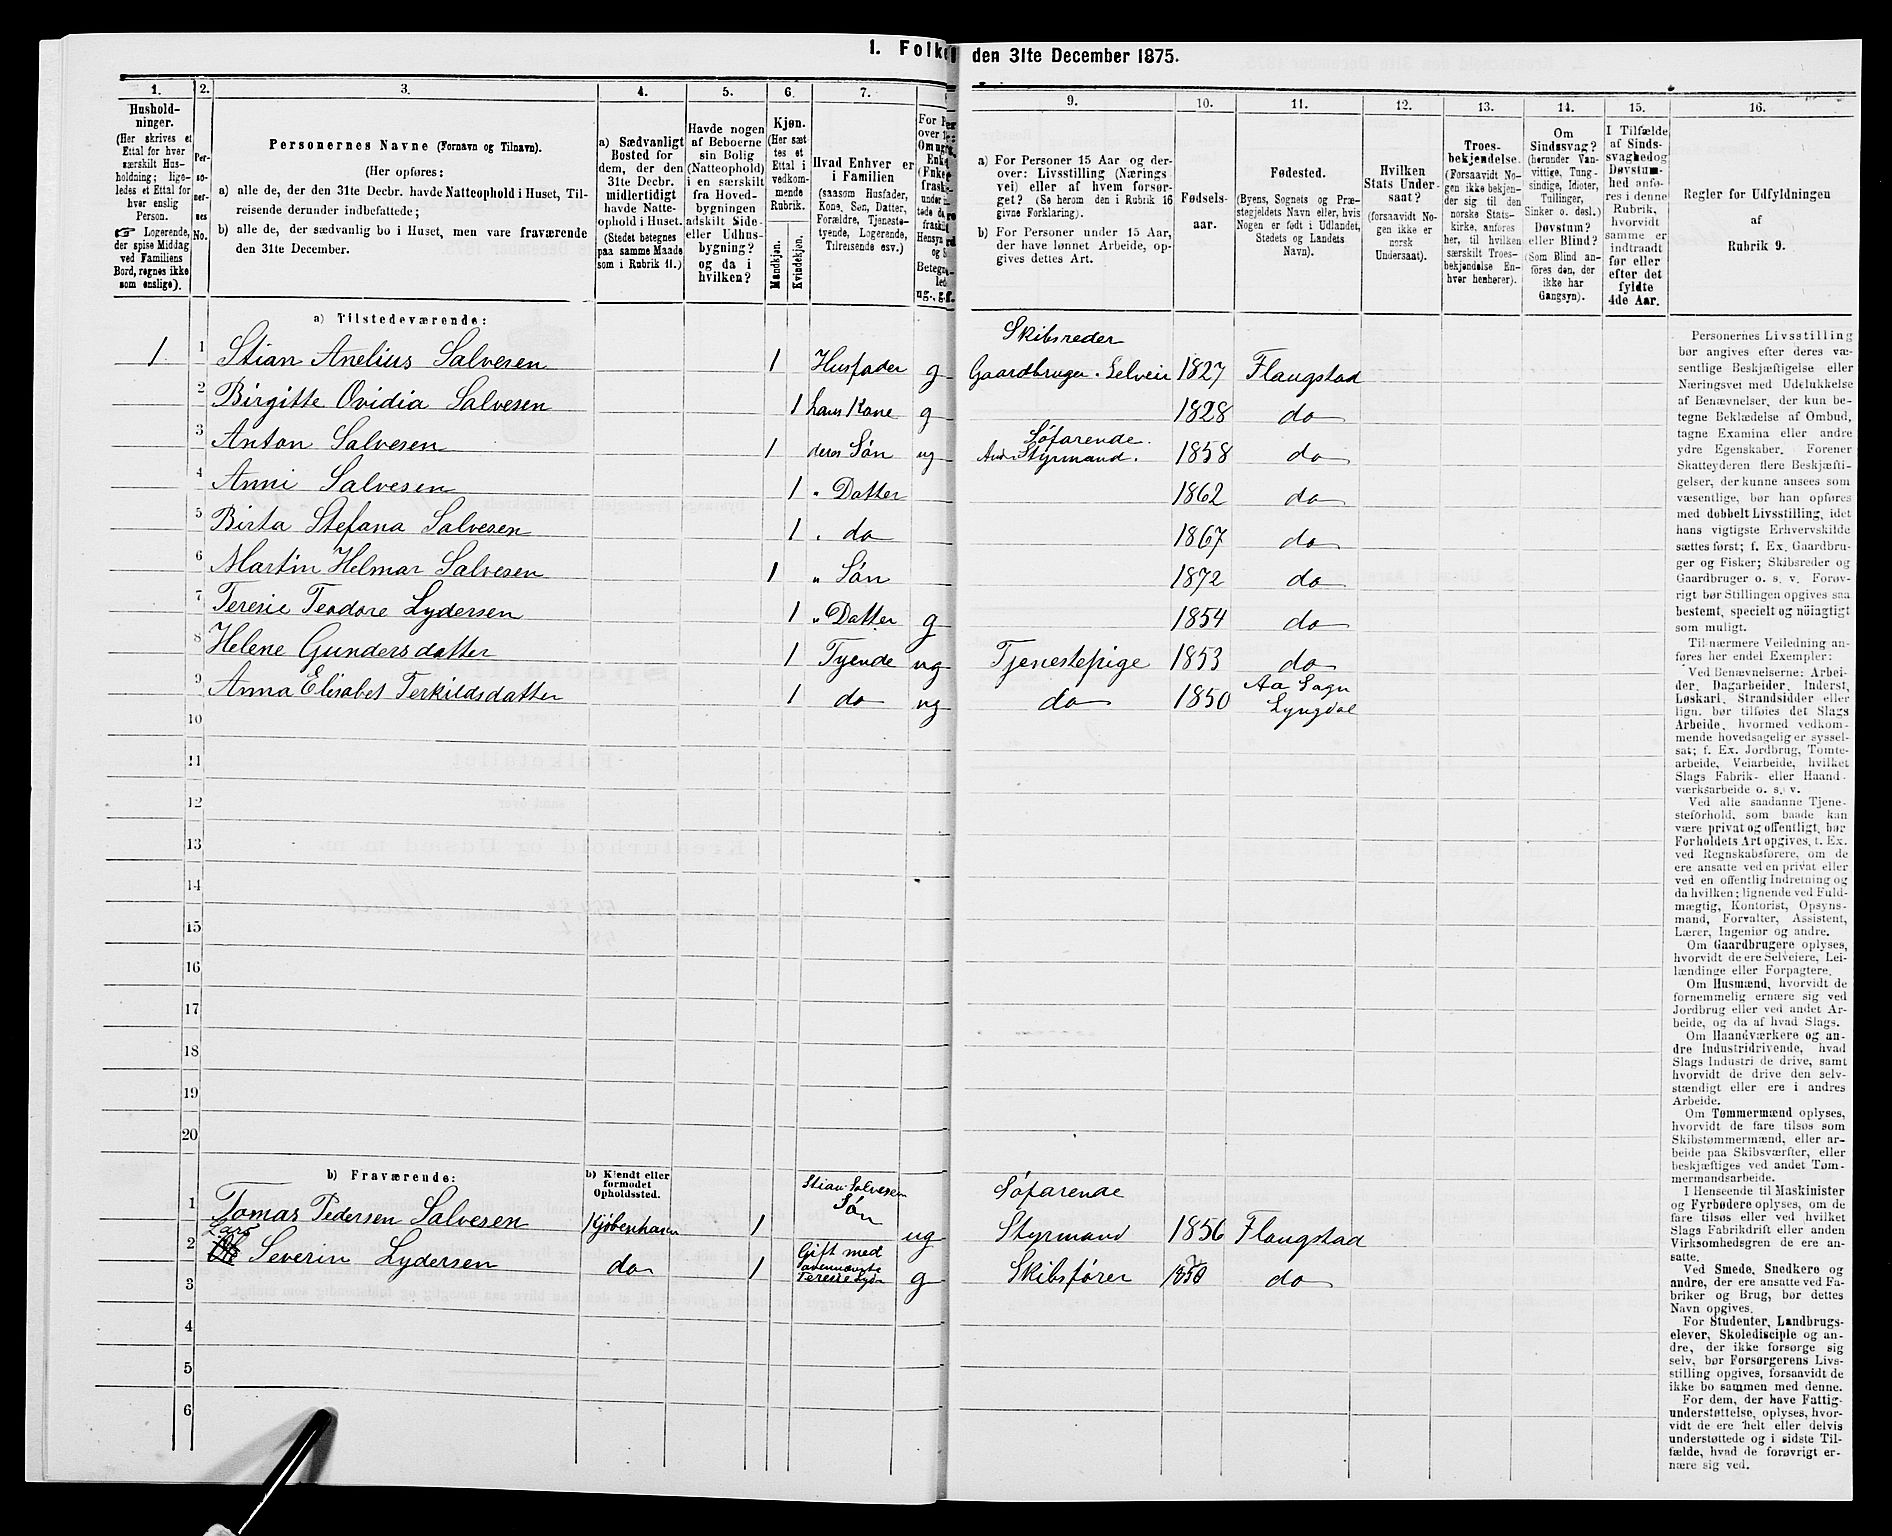 1. Folke
den 31te December 1875.
1.
2.
3.
4.
5.
6.
7.
8
9.
10.
11.
12.
13.
14.
15.
16.
Hushold-
ninger.
(Her skrives et
Ettal for hver
særskilt Hus-
holdning; lige-
ledes et Ettal for
hver enslig
Person.
☞ Logerende,
der spise Middag
ved Familiens
Bord, regnes ikke
som enslige).
Per-
so-
ner-
nes
No.
Personernes Navne (Fornavn og Tilnavn).
(Her opføres:
a) alle de, der den 31te Decbr. havde Natteophold i Huset, Til-
reisende derunder indbefattede;
b) alle de, der sædvanlig bo i Huset, men vare fraværende
den 31te December.
a) Sædvanligt
Bosted for
dem, der den
31te Decbr.
midlertidigt
havde Natte-
ophold i Huset.
(Stedet betegnes
paa samme Maade
som i Rubrik 11.)
Havde nogen
af Beboerne
sin Bolig
(Natteophold)
i en særskilt
fra Hoved-
bygningen
adskilt Side-
eller Udhus-
bygning?
og da i
hvilken?
Kjøn.
(Her sæt-
tes et
Ettal i
vedkom-
mende
Rubrik.
Mandkjøn.
Kvindekjøn.
Hvad Enhver er
i Familien
(saasom Husfader,
Kone, Søn, Datter,
Forældre, Tjeneste-
tyende, Logerende,
Tilreisende osv.)
a) For Personer 15 Aar og der-
over: Livsstilling (Nærings-
vei) eller af hvem forsør-
get? (Se herom den i Rubrik 16
givne Forklaring).
b) For Personer under 15 Aar,
der have lønnet Arbeide, op-
gives dettes Art.
Fødsels-
aar.
Fødested.
(Byens, Sognets og Præ-
stegjeldets Navn eller, hvis
Nogen er født i Udlandet,
Stedets og Landets
Navn).
Hvilken
Stats Under-
saat?
(forsaavidt No-
gen ikke er
norsk
Undersaat).
Troes-
bekjendelse.
(Forsaavidt No-
gen ikke bekjen-
der sig til den
norske Stats-
kirke, anføres
her, til hvilken
særskilt Troes-
bekjendelse En-
hver henhører).
Om
Sindssvag?
(herunder Van-
vittige, Tung-
sindige, Idioter,
Tullinger,
Sinker o. desl.)
Døvstum?
eller Blind?
(Som Blind an-
føres den, der
ikke har
Gangsyn).
I Tilfælde
af Sinds-
svaghed og
Døvstum-
hed anfø-
res i denne
Rubrik,
hvorvidt
samme er
indtraadt
før eller
efter det
fyldte
4de Aar.
Regler for Udfyldningen
af
Rubrik 9.
a) Tilstedeværende:
Skibsreder
1 1 Stian Anelius Salvesen 1 Husfader g Gaardbruger. Selveir 1827 Flaugstad
2 Birgitte Ovidia Salvesen 1 hans Kone g 1828 do
Søfarende.
3 Anton Salvesen 1 deres Søn ug Styrmand. 1858 do
4 Anni Salvesen 1 " Datter 1862 do
5 Birta Stefana Salvesen 1 " do 1867 do
6 Martin Helmar Salvesen 1 " Søn 1872 do
7 Teresie Teodore Lydersen 1 " Datter g 1854 do
8 Helene Gundersdatter 1 Tyende ug Tjenestepige 1853 do
9 Anna Elisabet Terkildsdatter 1 do ug do 1850 Aa Sogn
Lyngdal
10
11
12
13
14
15
16
17
18
19
20
b) Fraværende:
b) Kjendt eller
formodet
Opholdssted.
Stian Salvesen
Søn
Søfarende
1 Tomas Pedersen Salvesen Kjøbenhavn 1 ug Styrmand 1856 Flaugstad
Lars
2 Severin Lydersen do 1 Gift med
Teresie Lyder
g Skibsfører 1850 do
3
4
5
6
Personernes Livsstilling
bør angives efter deres væ-
sentlige Beskjæftigelse eller
Næringsvei med Udelukkelse
af Benævnelser, der kun be-
tegne Beklædelse af Ombud,
tagne Examina eller andre
ydre Egenskaber. Forener
Skatteyderen flere Beskjæfti-
gelser, der kunne ansees som
væsentlige, bør han opføres
med dobbelt Livsstilling, idet
hans vigtigste Erhvervskilde
sættes først; f. Ex. Gaardbru-
ger og Fisker; Skibsreder og
Gaardbruger o. s. v. Forøv-
rigt bør Stillingen opgives saa
bestemt, specielt og nøiagtigt
som muligt.
Til nærmere Veiledning an-
føres her endel Exempler:
Ved Benævnelserne: Arbei-
der, Dagarbeider, Inderst,
Løskarl, Strandsidder eller
lign. bør tilføies det Slags
Arbeide, hvormed vedkom-
mende hovedsagelig er syssel-
sat; f. Ex. Jordbrug, Tomte-
arbeide, Veiarbeide, hvilket
Slags Fabrik- eller Haand-
værksarbeide o. s. v.
Ved alle saadanne Tjene-
steforhold, som baade kan
være privat og offentligt, bør
Forholdets Art opgives, t. Ex.
ved Regnskabsførere, om de
ere ansatte ved en privat eller
ved en offentlig Indretning og
da hvilken; lignende ved Fuld-
mægtig, Kontorist, Opsyns-
mand, Forvalter, Assistent,
Lærer, Ingeniør og andre.
Om Gaardbrugere oplyses,
hvorvidt de ere Selveiere, Lei-
lændinge eller Forpagtere.
Om Husmænd, hvorvidt de
fornemmelig ernære sig ved
Jordbrug eller ved andet Ar-
beide, og da af hvad Slags.
Om Haandværkere og an-
dre Industridrivende, hvad
Slags Industri de drive, samt
hvorvidt de drive den selv-
stændigt eller ere i andres
Arbeide.
Om Tømmermænd oplyses,
hvorvidt de fare tilsøs som
Skibstømmermænd, eller ar-
beide paa Skibsværfter, eller
beskjæftiges ved andet Tøm-
mermandsarbeide.
I Henseende til Maskinister
og Fyrbødere oplyses, om de
fare tilsøs eller ved hvilket
Slags Fabrikdrift eller anden
Virksomhedsgren de ere an-
satte.
Ved Smede, Snedkere og
andre, der ere ansatte ved Fa-
briker og Brug, bør dettes
Navn opgives.
For Studenter, Landbrugs-
elever, Skoledisciple og an-
dre, der ikke forsørge sig
selv, bør Forsørgerens Livs-
stilling opgives, forsaavidt de
ikke bo sammen med denne.
For dem, der have Fattig-
understøttelse, oplyses, hvor-
vidt de ere helt eller delvis
understøttede og i sidste Til-
fælde, hvad de forøvrigt er-
nære sig ved.